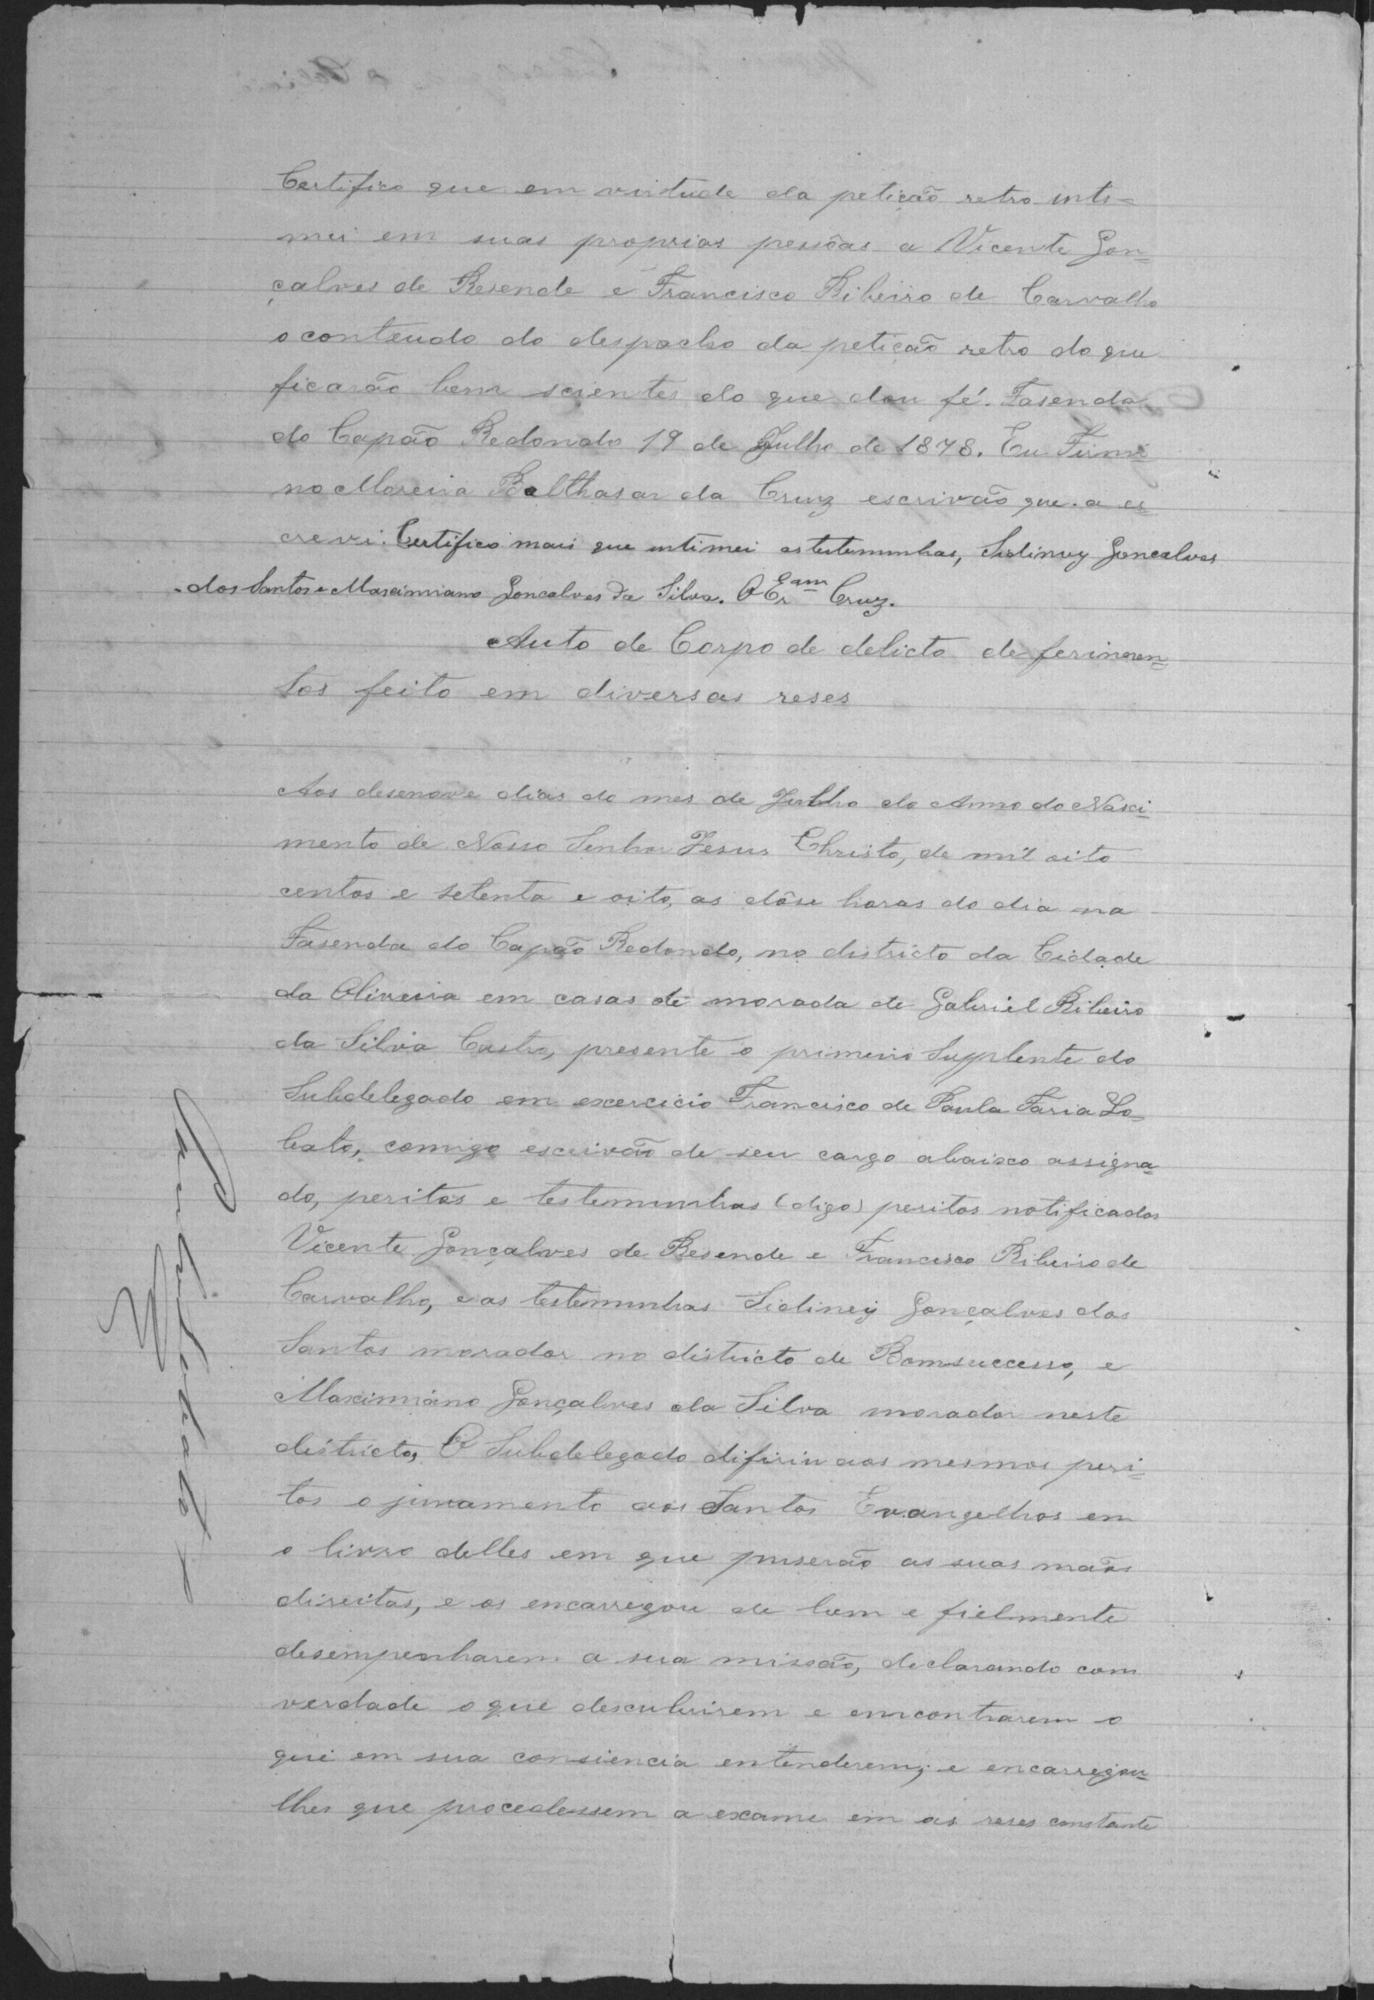 Certifico que em virtude da petição retro inti=
mei em suas proprias pessôas a Vicente Gon=
çalves de Resende e Francisco Ribeiro de Carvalho
o conteudo do despacho da petição retro do que
ficarão bem scientes do que dou fé. Fasenda
do Capão Redondo 19 de Julho de 1878. Eu Firmi
no Moreira Balthasar da Cruz escrivão que a es
crevi. Certifico mais que intimei as testemunhas, Sidiney Goncalves
dos Santos e Maximiano Goncalves da Silva. O Eram Cruz.
Auto de Corpo de delicto de ferimen=
tos feito em diversas reses
Aos desenove dias do mes de Julho do Anno do Nasci=
mento de Nosso Senhor Jesus Christo, de mil oito
centos e setenta e oito, as dôse horas do dia na
Fasenda do Capão Redondo, no districto da Cidade
da Oliveira em casas de morada de Gabriel Ribeiro
da Silva Castro, presente o primeiro Supplente do
Subdelegado em exercicio Francisco de Paula Faria Lo=
bato, comigo escrivão de seu cargo abaixo assigna=
do, peritos e testemunhas (digo) peritos notificados
Vicente Gonçalves de Resende e Francisco Ribeiro de
Carvalho, e as testemunhas Sidiney Gonçalves dos
Santos morador no districto de Bomsuccesso, e
Maximiano Gonçalves da Silva morador neste
districto, O Subdelegado difiriu aos mesmos peri=
tos o juramento aos Santos Evangelhos em
o livro delles em que puserão as suas mãos
direitas, e os encarregou de bem e fielmente
desempenharem a sua missão, declarando com
verdade o que descubrirem e emcontrarem o
que em sua consiencia entenderem; e encarregou=
lhes que procedessem a exame em as reses constante